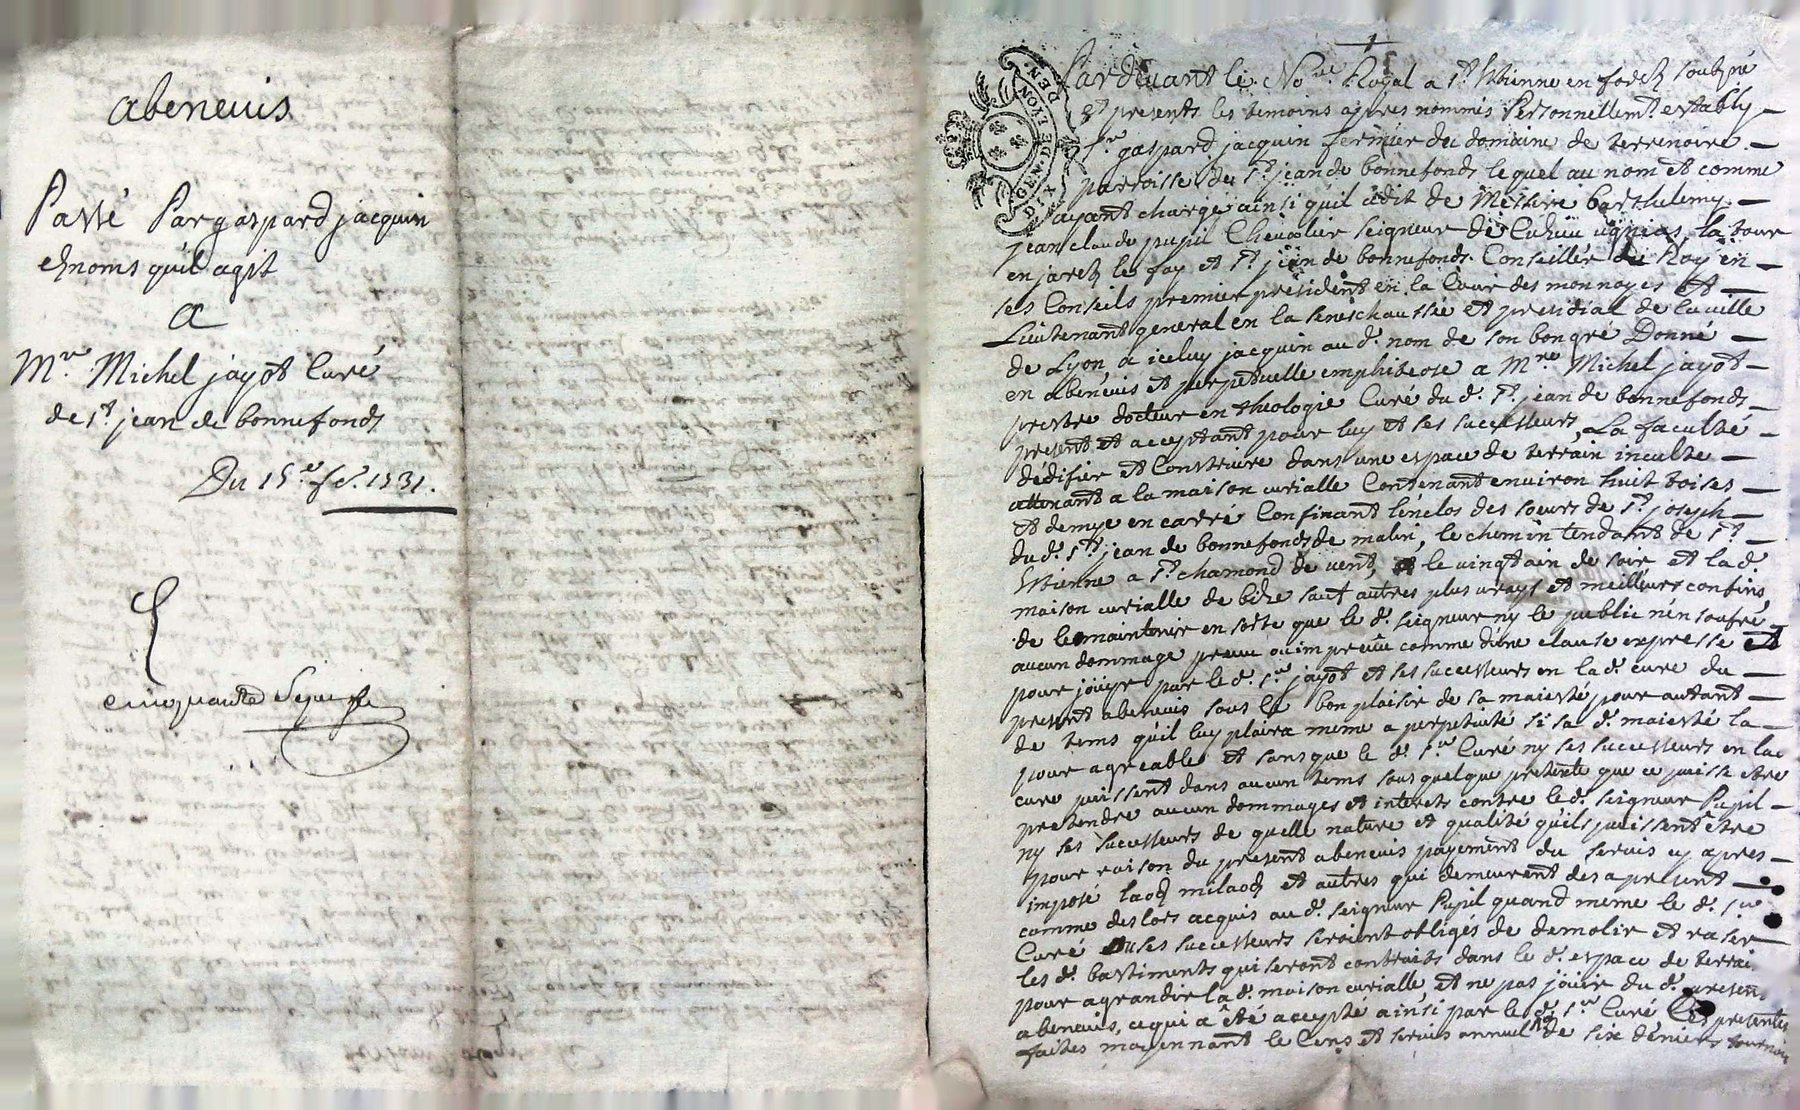 abenevis
Passé Par gaspard jacquin
ès noms qu'il agit
A
Mre. Michel jayot Curé
de st. jean de bonnefonds
Du 15e. 1731.
cinquante sept
GEN. DE LYON
DIX DEN.
Pardevant le Nore Royal a st. Estienne en forez soubné
Et presents les temoins apres nommés Personnellemt. estably
sr. gaspard jacquin fermier du domaine de terrenoire
parroisse de st. jean de bonnefonds lequel au nom et comme
ayant charge ainsi qu'il a dit de Messire barthelemy
jean claude pupil Chevalier seigneur de la tour
en jarez le fay et st. jean de bonnefonds. Conseiller du Roy en
ses Conseils premier president en la Cour des monnoyes et
Lieutenant general en la seneschaussée et presidial de la ville
de Lyon, a iceluy jacquin au d. nom de son bon gré Donné
en abenevis et perpetuelle emphiteose a Mre. Michel jayot
prestre docteur en theologie Curé du d. st. jean de bonnefonds
present et acceptant pour luy et ses successeurs, La faculté
dédifier et Construire dans une espace de terrain inculte
attenant a la maison curialle Contenant environ huit toises
et demye en carré Confinant lénclos des soeurs de st. joseph
du d. st. jean de bonnefonds de matin, le chemin tendant de st.
Estienne a st. chamond de vent, le vingtain de soir et la d.
maison curialle de bize sauf autres plus vrays et meilleurs confins
de le maintenir en sorte que le d. seigneur ny le public nén soufre
aucun dommage preveu ou impreveu comme d'une clause expresse et
pour joüyr par le d. sr. jayot et ses successeurs en la d. cure du
present abenevis sous le bon plaisir de sa maiesté pour autant
de tems qu'il luy plaira meme a perpetuité si sa d. maiesté la
pour agreable et sans que le d. sr. Curé ny ses successeurs en la
cure puissent dans aucun tems sous quelque pretexte que ce puisse etre
pretendre aucun dommages et interets contre le d. seigneur Pupil
ny ses successeurs de quelle nature et qualité qu'ils puissent être
pour raison du present abenevis payement du servis cy apres
imposé laods milaods et autres qui demeurent des a present
comme des lors acquis au d. seigneur Pupil quand meme le d. sr.
Curé ou ses successeurs seroient obligés de demolir et raser
les d. bastiments qui seront contruits dans le d. espace de terrai
pour agrandir la d. maison curialle et ne pas joüir du d. present
abenevis, ce qui a été accepté ainsi par le d. sr. Curé Les presentes
faites moyennant le Cens et servis annuel de six deniers tournois